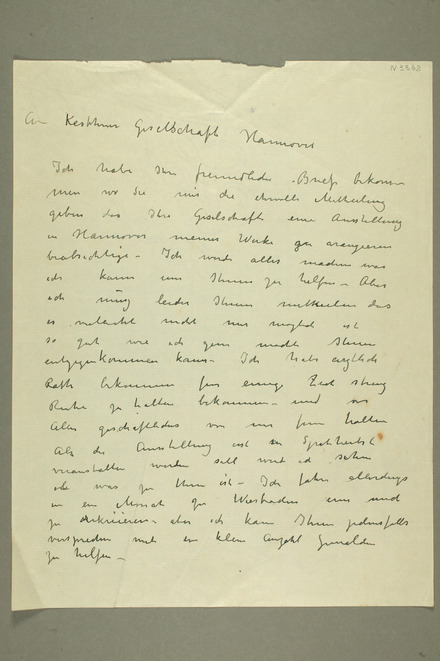 N 3362
An Kestner Gesellschaft Hannover
Ich habe Ihr freundliches Brief bekom-
men wo Sie mir die Mittheilung
geben das Ihre Gesellschaft eine Ausstellung
in Hannover meiner Werke zu arangieren
beabsichtige – Ich werde alles machen was
ich kann um Ihnen zu helfen – Aber
ich muss leider Ihnen mittheilen das
es vieleicht nicht mir möglich ist
so gut wie ich gern möchte Ihnen
entgegenkommen kann – Ich habe
Rath bekommen für einige Zeit streng
Ruhe zu halten bekommen – und
Alles geschäftliches von mir fern halten
Als die Ausstellung erst im Spätherbst
veranstalten werden soll werde ich sehen
ob was zu thun ist – Ich fahre allerdings
in ein Monat zu Wiesbaden um und
zu – aber ich kann Ihnen jedenfalls
versprechen mit ein klein Anzahl Gemälden
zu helfen –